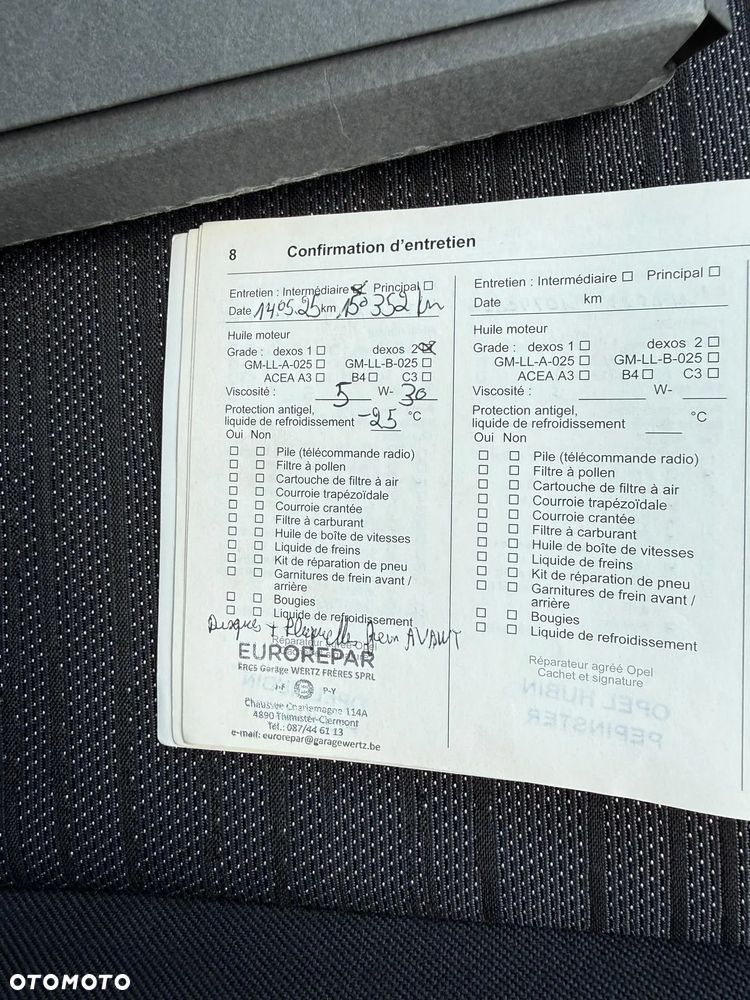 8 Confirmation d'entretien
Entretien : Intermédiaire ☒ Principal ☐
Date 14.05.25 km 150 352 km
Huile moteur
Grade : dexos 1 ☐ dexos 2 ☒
GM-LL-A-025 ☐ GM-LL-B-025 ☐
ACEA A3 ☐ B4 ☐ C3 ☐
Viscosité : 5 W- 30
Protection antigel,
liquide de refroidissement -25 °C
Oui Non
☐ ☐ Pile (télécommande radio)
☐ ☐ Filtre à pollen
☐ ☐ Cartouche de filtre à air
☐ ☐ Courroie trapézoïdale
☐ ☐ Courroie crantée
☐ ☐ Filtre à carburant
☐ ☐ Huile de boîte de vitesses
☐ ☐ Liquide de freins
☐ ☐ Kit de réparation de pneu
☐ ☐ Garnitures de frein avant /
arrière
☐ ☐ Bougies
☐ ☐ Liquide de refroidissement
Disques + Plaquettes frein AVANT
Réparateur agréé Opel
EUROREPAR
FRES Garage WERTZ FRÈRES SPRL
P-Y
Chaussée Charlemagne 114A
4890 Thimister-Clermont
Tél.: 087/44 61 13
e-mail: eurorepar@garagewertz.be
Entretien : Intermédiaire ☐ Principal ☐
Date km
Huile moteur
Grade : dexos 1 ☐ dexos 2 ☐
GM-LL-A-025 ☐ GM-LL-B-025 ☐
ACEA A3 ☐ B4 ☐ C3 ☐
Viscosité : W-
Protection antigel,
liquide de refroidissement °C
Oui Non
☐ ☐ Pile (télécommande radio)
☐ ☐ Filtre à pollen
☐ ☐ Cartouche de filtre à air
☐ ☐ Courroie trapézoïdale
☐ ☐ Courroie crantée
☐ ☐ Filtre à carburant
☐ ☐ Huile de boîte de vitesses
☐ ☐ Liquide de freins
☐ ☐ Kit de réparation de pneu
☐ ☐ Garnitures de frein avant /
arrière
☐ ☐ Bougies
☐ ☐ Liquide de refroidissement
Réparateur agréé Opel
Cachet et signature
OPEL HUBIN
PEPINSTER
OTOMOTO